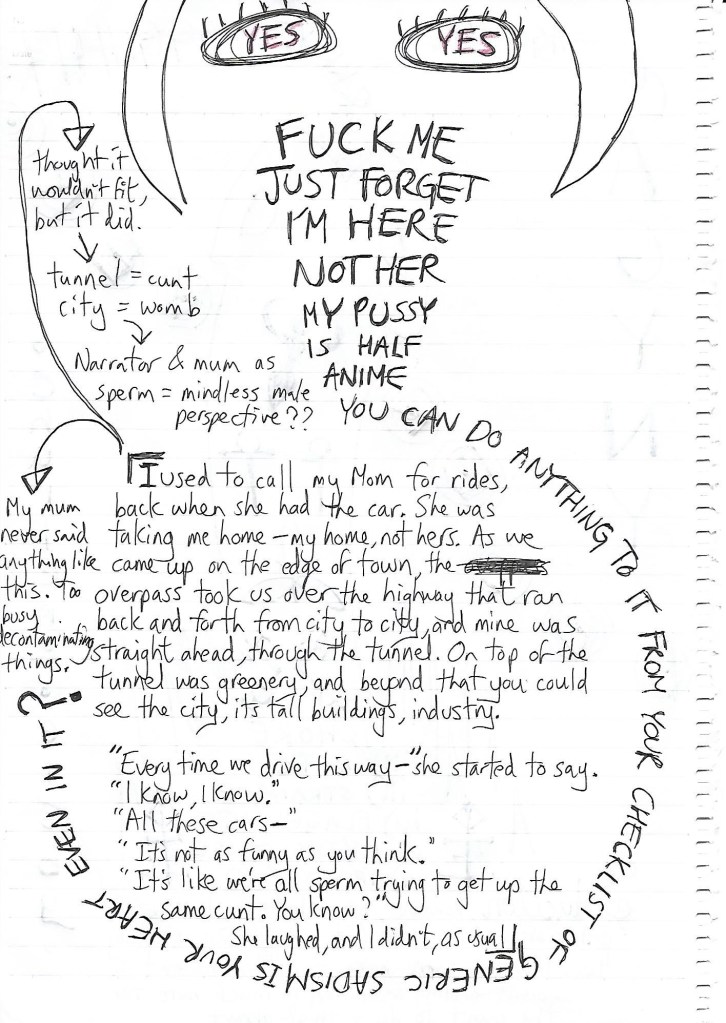 YES YES
FUCK ME
JUST FORGET
I'M HERE
NOT HER
MY PUSSY
IS HALF
ANIME
YOU CAN DO ANYTHING TO IT FROM YOUR CHECKLIST OF GENERIC SADISM IS YOUR HEART EVEN IN IT?
thought it
wouldn't fit,
but it did.
tunnel = cunt
city = womb
Narrator & mum as
sperm = mindless male
perspective??
My mum
never said
anything like
this. Too
busy
decontaminating
things.
I used to call my Mom for rides,
back when she had the car. She was
taking me home – my home, not hers. As we
came up on the edge of town, the
overpass took us over the highway that ran
back and forth from city to city, and mine was
straight ahead, through the tunnel. On top of the
tunnel was greenery, and beyond that you could
see the city, its tall buildings, industry.
"Every time we drive this way–" she started to say.
"I know, I know."
"All these cars–"
"It's not as funny as you think."
"It's like we're all sperm trying to get up the
same cunt. You know?"
She laughed, and I didn't, as usual